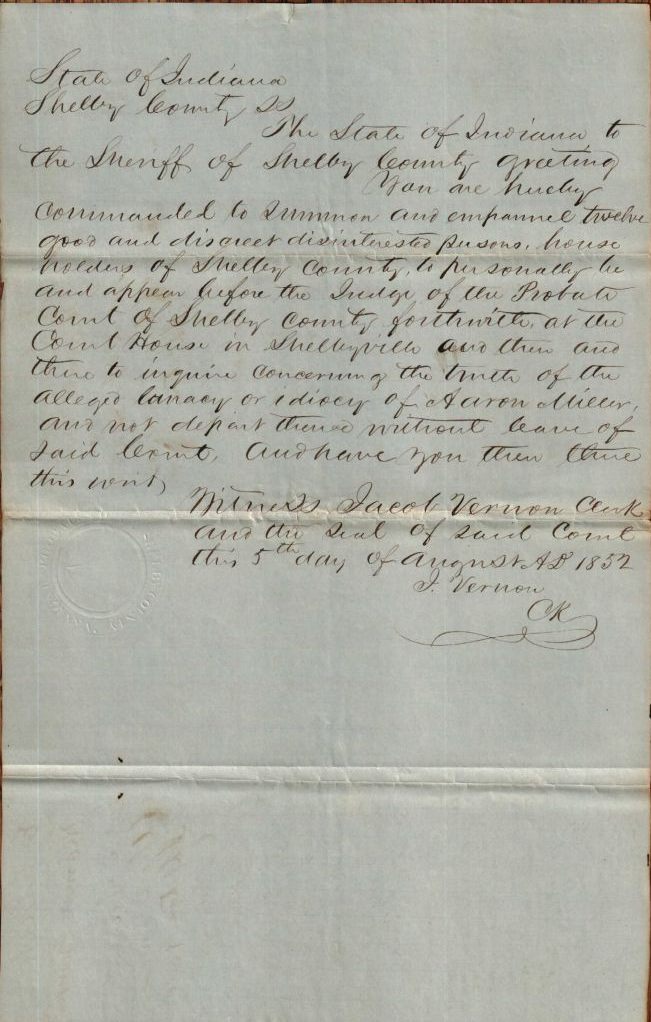 State of Indiana
Shelby County SS
The State of Indiana to
the Sheriff of Shelby County Greeting
You are hereby
commanded to summon and empannel twelve
good and discreet disinterested persons, house
holders of Shelby County, to personally be
and appear before the Judge of the Probate
Court of Shelby County forthwith, at the
Court House in Shelbyville and then and
there to inquire concerning the truth of the
alleged lunacy or idiocy of Aaron Miller,
and not depart thence without leave of
said Court, And have you then there
this writ,
Witness Jacob Vernon Clerk
and the seal of said Court
this 5th day of August AD 1852
J. Vernon
Clk